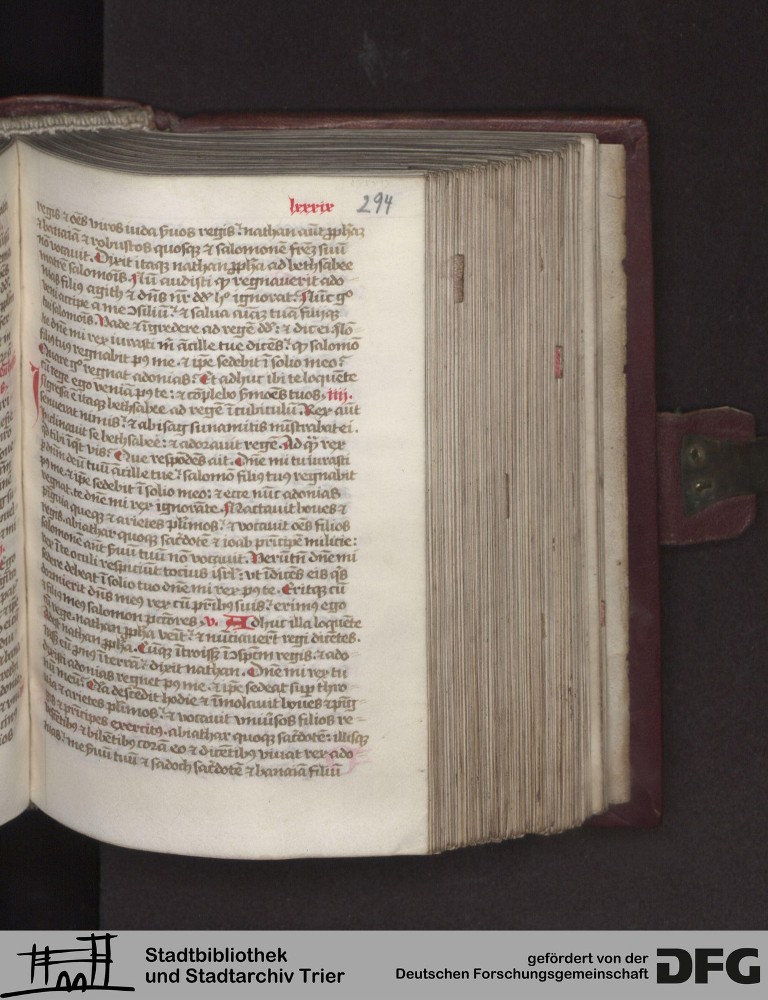 lxxxix 294
regis ⁊ oēs viros iuda ẜuos regis: nathan aūt ꝓphā
⁊ banaiā ⁊ robustos quosqꝫ ⁊ salomonē frēȝ suū
nō vocauit. Dixit itaqꝫ nathan ꝓpha ad bethsabee
matrē salomōis. Nū audisti qꝫ regnauerit ado
nias filiꝰ agith ⁊ dn̄s nr̄ dd̄ hͦ ignorat: Nūc gͦ
veni accipe a me ↄsiliū: ⁊ salua aīaȝ tuā filiiqꝫ
tui salomōis. Vade ⁊ īgredere ad regē dd̄: ⁊ dic ei. Nōne
tu dn̄e mi rex iurasti m̄ ācille tue dicēs: qꝫ salomō
filiꝰ tuꝰ regnabit pꝰ me. ⁊ ip̄e sedebit ī solio meo:
Quare gͦ regnat adonias: Et adhuc ibi te loquēte
cū rege ego veniā pꝰ te: ⁊ cōplebo ẜmōes tuos. iiij.
Ingressa ē itaqꝫ bethsabee ad regē ī cubiculū. Rex aūt
senuerat nimis: ⁊ abisag sunamitis mīstrabat ei.
Inclinauit se bethsabee: ⁊ adorauit regē. Ad quā rex
Qͥd tibi īqͥt vis: Que respōdēs ait. Dn̄e mi tu iurasti
p dn̄m deū tuū ācille tue: salomō filiꝰ tuꝰ regnabit
pꝰ me. ⁊ ip̄e sedebit ī solio meo: ⁊ ecce nūc adonias
regnat. te dn̄e mi rex ignorāte. Mactauit boues ⁊
pīguia queqꝫ ⁊ arietes pl̄imos: ⁊ vocauit oēs filios
regis. abiathar quoqꝫ sac̄dotē ⁊ ioab prīcipē milicie:
salomonē aūt ẜuū tuū nō vocauit. Verūtn̄ dn̄e mi
rex ī te oculi respiciūt tocius isrl̄: vt īdices eis qͥs
sedere debeat ī solio tuo dn̄e mi rex pꝰ te. Eritqꝫ cū
dormierit dn̄s meꝰ rex cū prībꝰ suis: erimꝰ ego
⁊ filiꝰ meꝰ salomon pctōres. v. Adhuc illa loquēte
cū rege. nathan ꝓpha venit: ⁊ nūciauerūt regi dicētes.
Adest nathan ꝓpha. Cūqꝫ ītroisset ī ↄspctm regis. ⁊ ado
rasset eū ꝓnꝰ ī terrā: dixit nathan. Dn̄e mi rex tu
dixisti adonias regnet pꝰ me. ⁊ ip̄e sedeat suꝑ thro
nū meū: Qꝛ descēdit hodie ⁊ īmolauit boues ⁊ pīg
uia ⁊ arietes pl̄imos: ⁊ vocauit vniūsos filios re
gis ⁊ prīcipes exercitꝰ. abiathar quoqꝫ sac̄dotē: illisqꝫ
vescētibꝰ ⁊ bibētibꝰ corā eo ⁊ dicētibꝰ viuat rex ado
nias: me ẜuū tuū ⁊ sadoch sac̄dotē ⁊ banaiā filiū
Stadtbibliothek
und Stadtarchiv Trier
gefördert von der
Deutschen Forschungsgemeinschaft
DFG